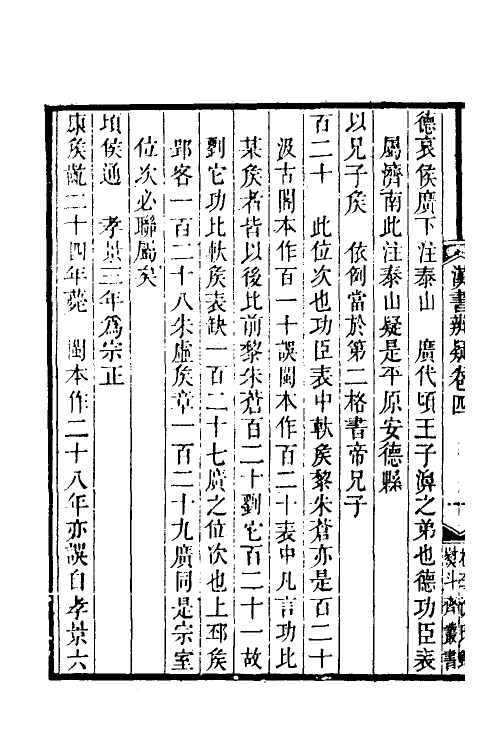 漢書辨疑卷四
德哀侯廣下注泰山　廣代頃王子濞之弟也德功臣表
屬濟南此注泰山疑是平原安德縣
以兄子矦　依例當於第二格書帝兄子
百二十　此位次也功臣表中軑矦黎朱蒼亦是百二十
汲古閣本作百一十誤閩本作百二十表中凡言功比
某矦者皆以後比前黎朱蒼百二十劉它百二十一故
劉它功比軑矦表缺一百二十七廣之位次也上邳矦
郢客一百二十八朱虛矦章一百二十九廣同是宗室
位次必聯屬矣
頃侯通　孝景三年爲宗正
康矦齕二十四年薨　閩本作二十八年亦誤自孝景六